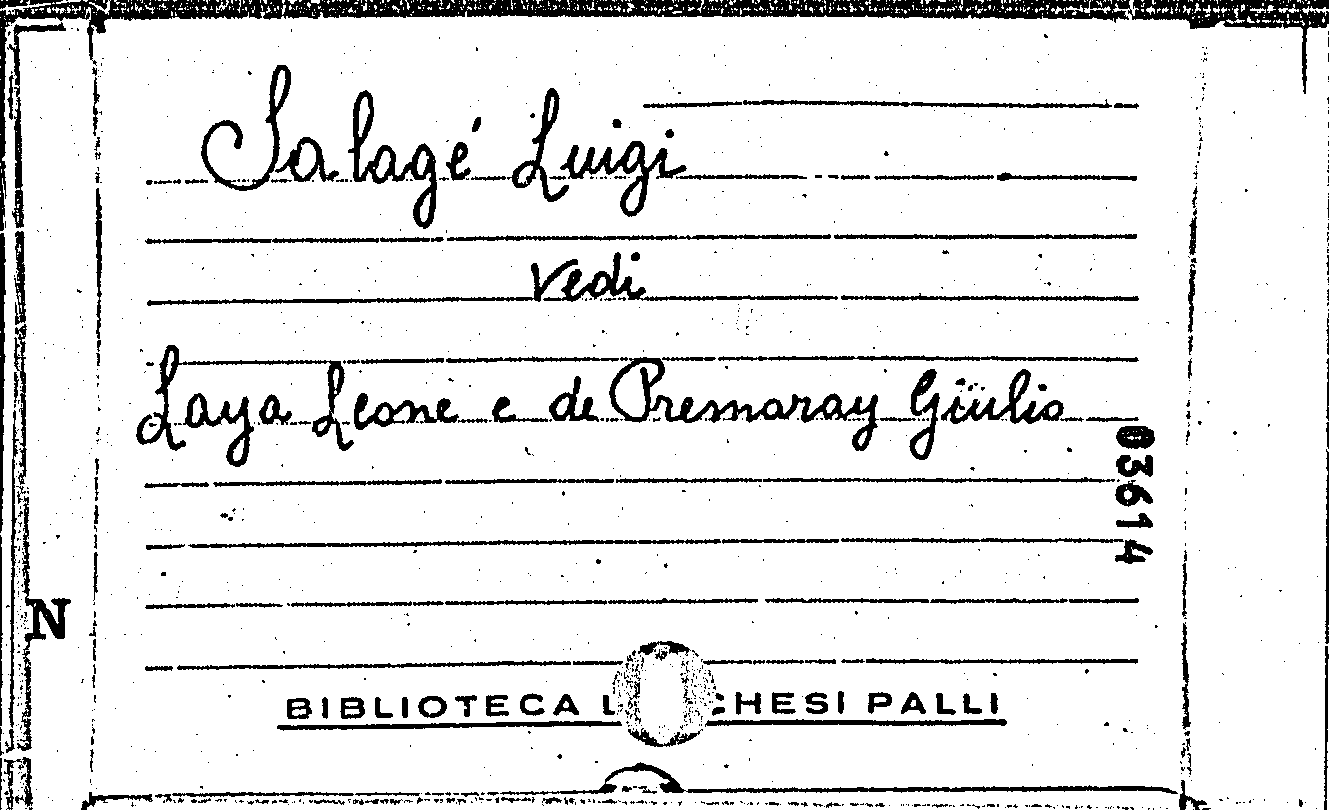 Salagé Luigi
vedi
Laya Leone e de Premaray Giülio
03614
N
BIBLIOTECA L CHESI PALLI